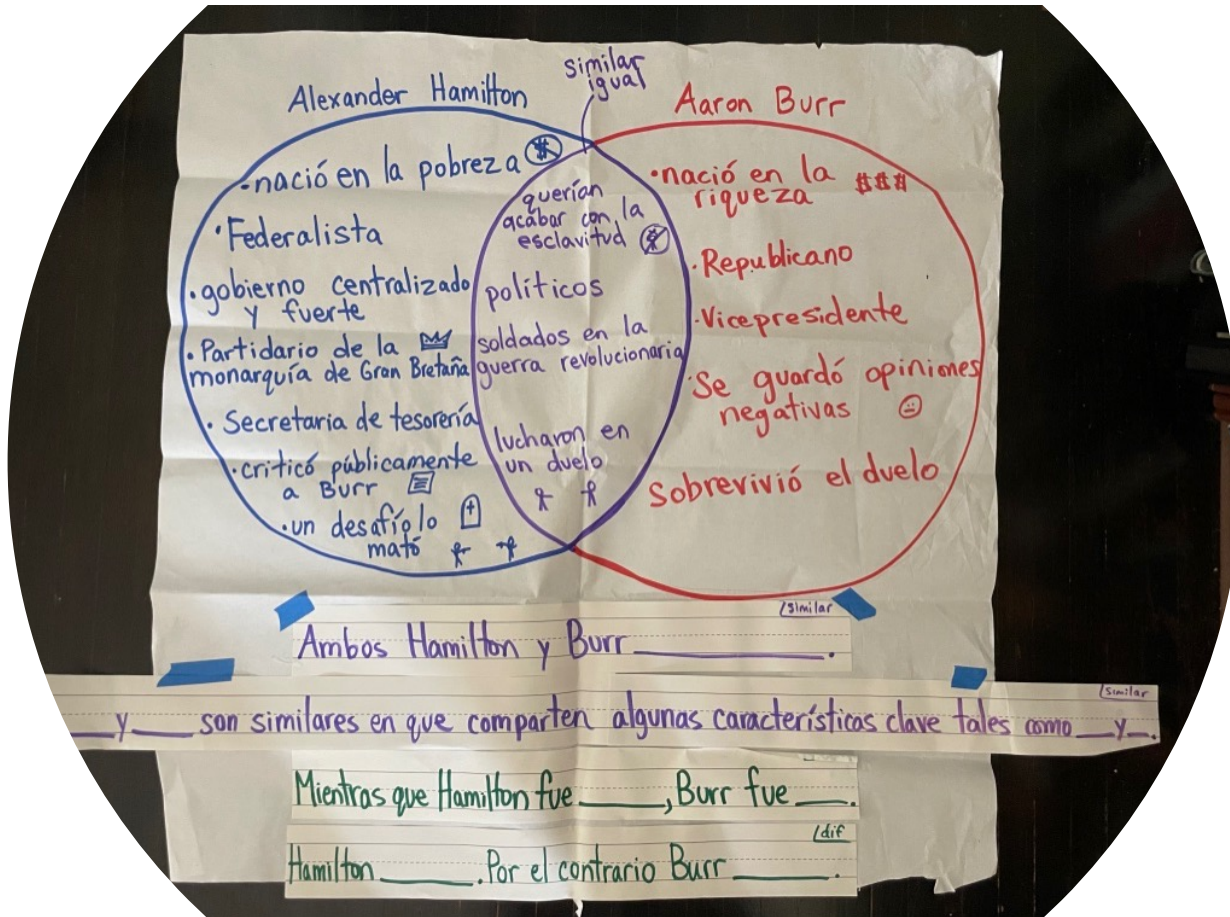 similar
igual
Alexander Hamilton
Aaron Burr
•nació en la pobreza $
•Federalista
•gobierno centralizado
y fuerte
•Partidario de la
monarquía de Gran Bretaña
•Secretaria de tesorería
•criticó públicamente
a Burr
•un desafío lo
mató
querían
acabar con la
esclavitud
políticos
soldados en la
guerra revolucionaria
lucharon en
un duelo
•nació en la $$$
riqueza
•Republicano
•Vicepresidente
•Se guardó opiniones
negativas
Sobrevivió el duelo
similar
Ambos Hamilton y Burr ______.
similar
___y___ son similares en que comparten algunas características clave tales como __y__.
Mientras que Hamilton fue_____, Burr fue ___.
dif
Hamilton _____. Por el contrario Burr _____.